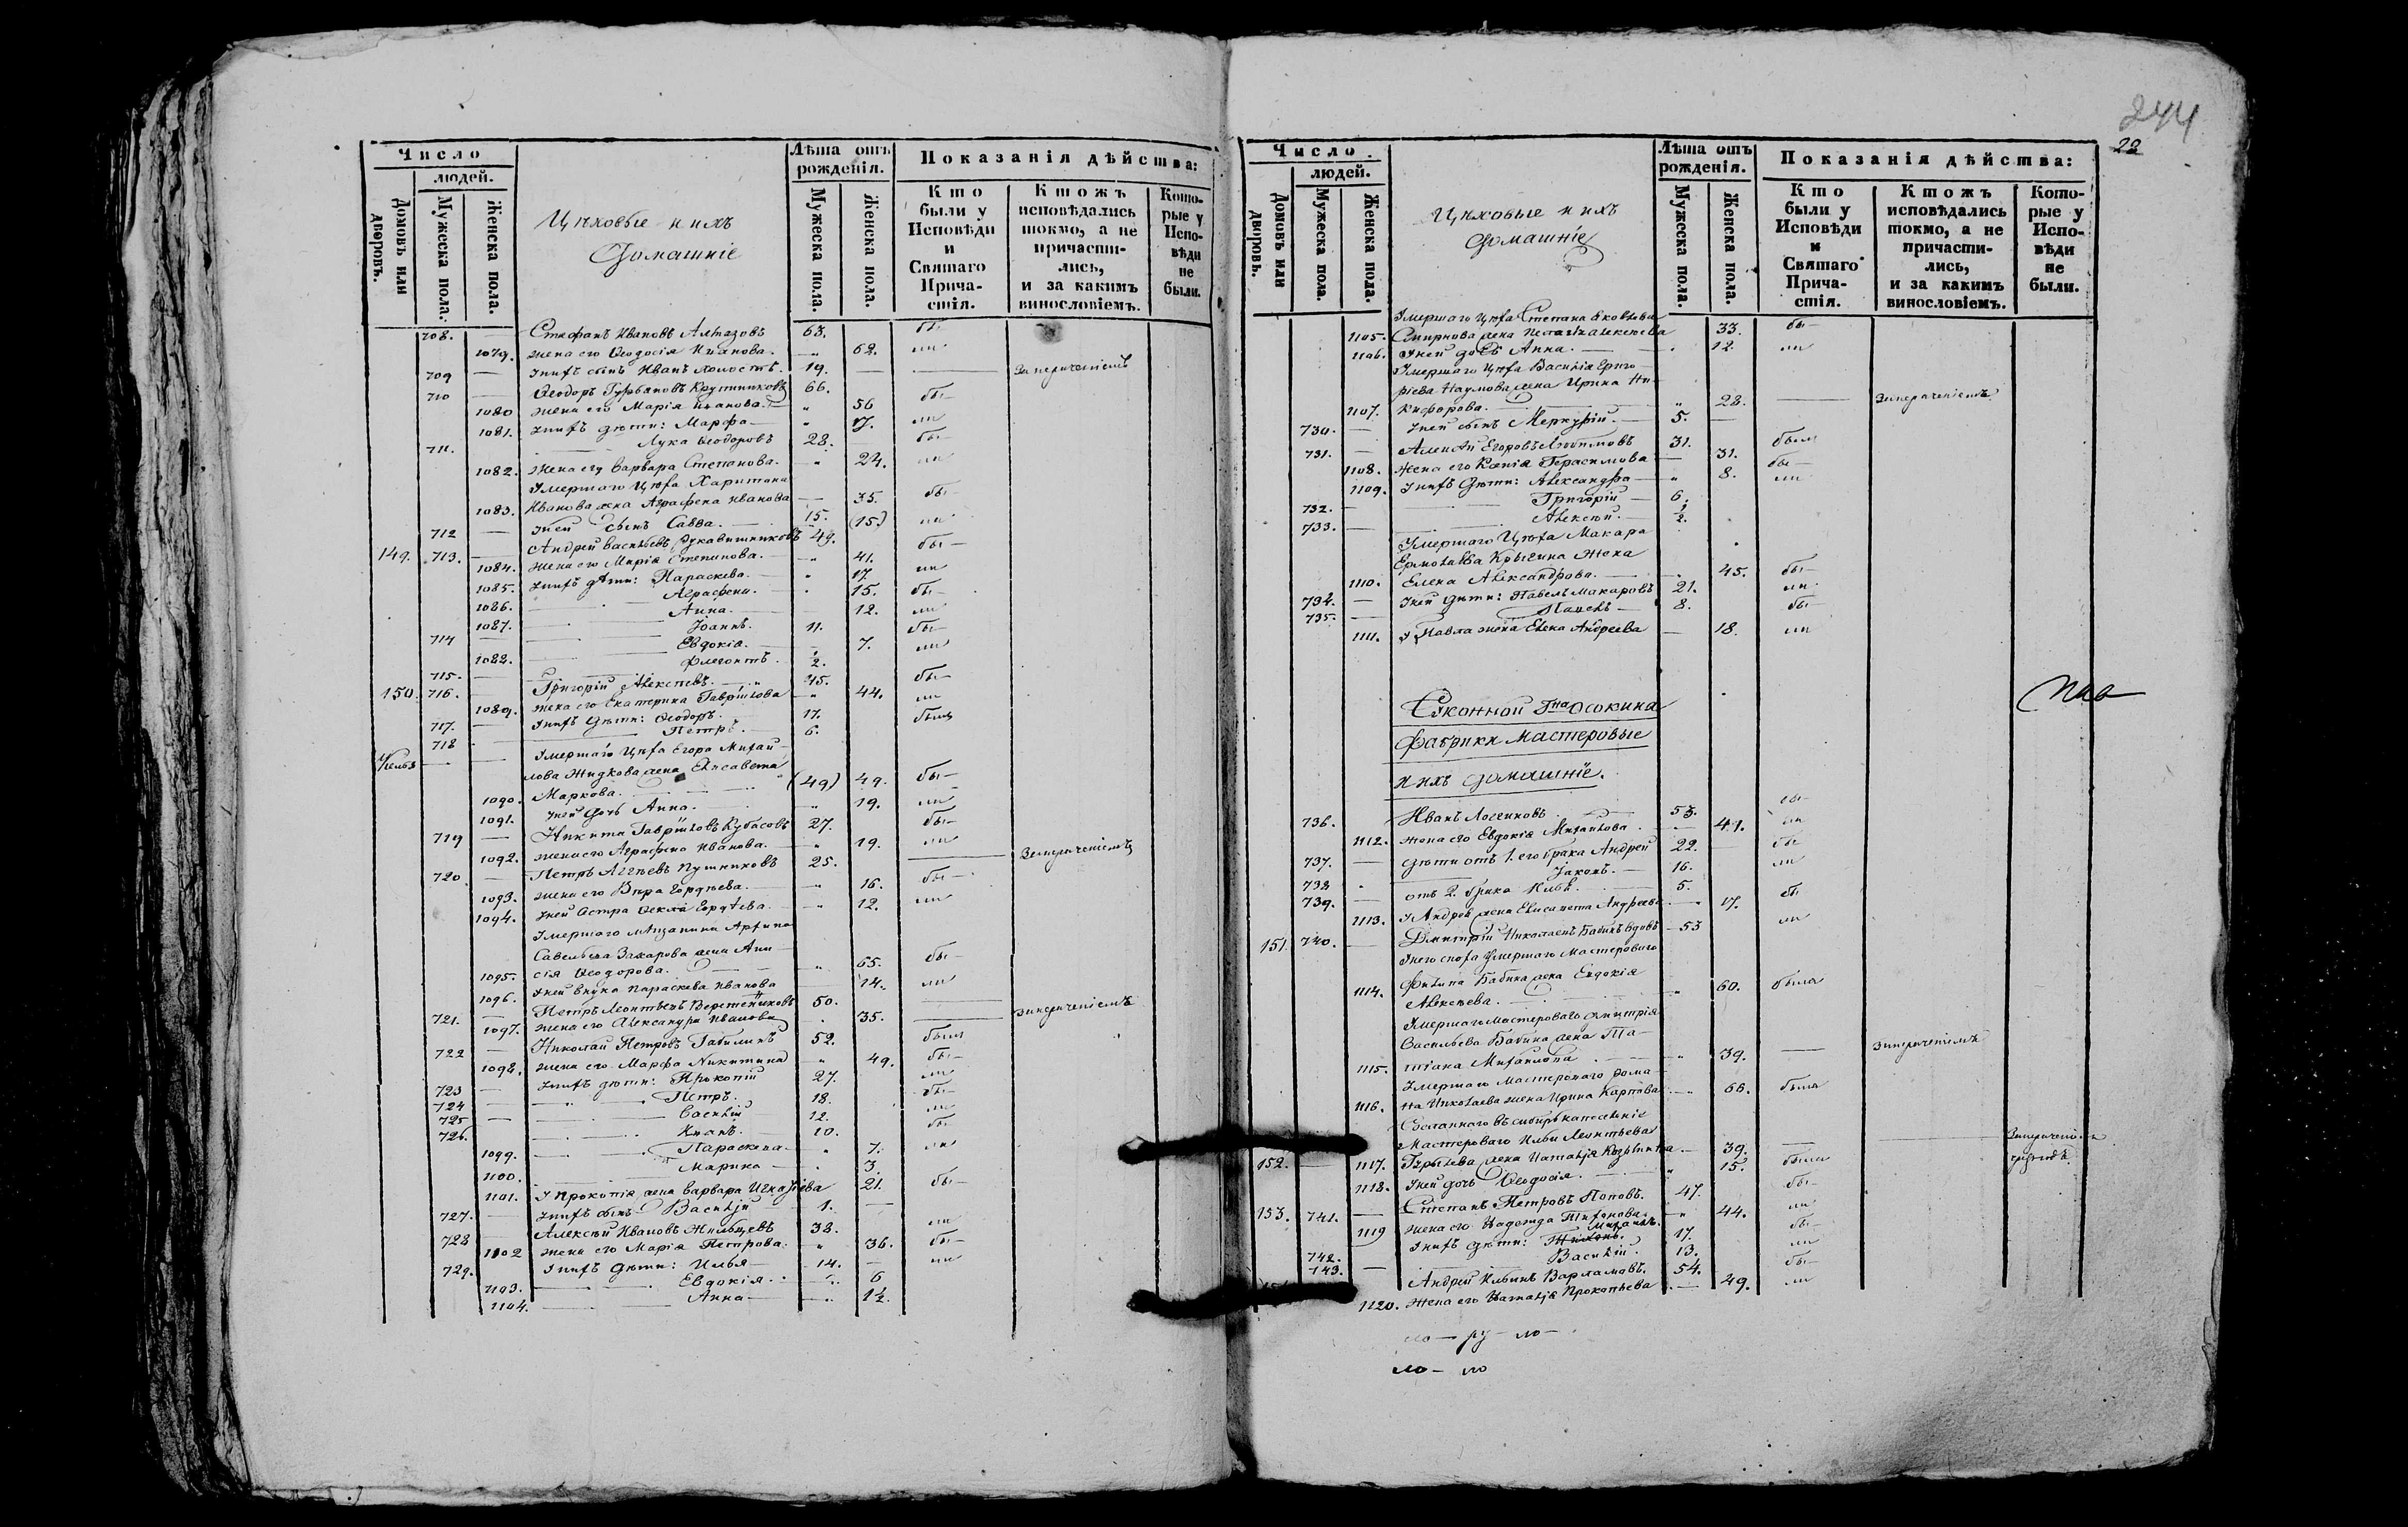 Число
людей.
Домовъ или дворовъ.
Мужеска пола.
Женска пола.
Цѣховые и ихъ
Домашніе
Лѣта отъ рожденія.
Мужеска пола.
Женска пола.
Показанія дѣйства:
Кто были у Исповѣди и Святаго Причастія.
Ктожъ исповѣдались токмо, а не причастились, и за какимъ винословіемъ.
Которые у Исповѣди не были.
708. Стефанъ Ивановъ Алмазовъ 63. бы-
1079. жена его Ѳеодосія Иванова. 62. ли
709 У нихъ сынъ Иванъ холостъ. 19.
710 Ѳеодоръ Гурьяновъ 66.
1080 жена его Марія Иванова. 56 бы-
1081. У нихъ дѣти: Марѳа 17. ли
711. Лука Ѳеодоровъ 28. бы-
1082. жена его Варвара Степанова. 24. ли
Умершаго Цѣха Харитона
1083. Иванова жена Аграфена Иванова 35. бы-
712 У ней сынъ Савва. 15. (15.) ли
149. 713. Андрей Васильевъ Рукавишниковъ 49. бы-
1084. жена его Марія Степанова. 41. ли
1085. У нихъ дѣти: Параскева. 17. бы-
1086. Аграфена. 15. ли
1087. Анна. 12. бы-
714 Іоаннъ. 11. ли
1088. Евдокія. 7.
715. Флегонтъ. 2.
150. 716. Григорій Алексѣевъ. 45. бы-
1089. жена его Екатерина Гаврилова 44. ли
717. У нихъ дѣти: Ѳеодоръ. 17. былъ
718 Петръ. 6.
Умершаго Цѣха Егора Михай-
лова Жидкова жена Елисавета
1090. Маркова. (49) 49. бы-
1091. У ней дочь Анна. 19. ли
719 Никита Гавриловъ Кубасовъ 27. бы-
1092. жена его Аграфена Иванова. 19. ли
720 Петръ Пушниковъ 25.
1093. жена его Вѣра Гордѣева. 16. бы-
1094. У ней сестра Ѳекла Гордѣева. 12. ли
Умершаго мѣщанина Архипа
Савельева Захарова жена Ани-
1095. сія Ѳеодорова. 65. бы-
1096. У ней внука Параскева Иванова 14. ли
721. Петръ Леонтьевъ Веретенниковъ 50.
1097. жена его Александра Иванова 35.
722 Николай Петровъ 52. былъ
1098. жена его Марѳа Никитина 49. бы-
723 У нихъ дѣти: Прокопій 27. ли
724 Петръ. 18. бы-
725 Василій 12. ли
726. Иванъ. 10. бы-
1099. Параскева 7. ли
1100. Марина 3.
1101. У Прокопія жена Варвара 21. бы-
727. У нихъ сынъ Василій 1.
728 Алексѣй Ивановъ Жильцевъ 38. ли
1102 жена его Марія Петрова. 36. бы-
729. У нихъ дѣти: Илья 14. ли
1103. Евдокія. 6
1104. Анна 1½.
244
28
Число
людей.
Домовъ или дворовъ.
Мужеска пола.
Женска пола.
Цѣховые и ихъ
домашніе
Лѣта отъ рожденія.
Мужеска пола.
Женска пола.
Показанія дѣйства:
Кто были у Исповѣди и Святаго Причастія.
Ктожъ исповѣдались токмо, а не причастились, и за какимъ винословіемъ.
Которые у Исповѣди не были.
Умершаго Цѣха Степана Яковлева
1105. Смирнова жена Пелагія Алексѣева 33. бы-
1106. У ней дочь Анна. 12. ли
Умершаго Цѣха Василія Григо-
рьева Наумова жена Ирина Ни-
1107. кифорова. 28.
730. У ней сынъ Меркурій. 5.
731. Алексѣй Егоровъ Любимовъ 31. былъ
1108. жена его Ксенія Герасимова 31. бы-
1109. У нихъ дѣти: Александра 8. ли
732. Григорій 6.
733. Алексѣй. ½.
Умершаго Цѣха Макара
Ермолаева Крысина жена
1110. Елена Александрова. 45. бы-
734. У ней дѣти: Павелъ Макаровъ 21. ли
735. Павелъ 8. бы-
1111. У Павла жена Елена Андреева 18. ли
Суконной Гна Осокина
фабрики Мастеровые
и ихъ домашніе.
736. Иванъ Логиновъ 53. бы-
1112. жена его Евдокія Михайлова. 47. ли
737. дѣти отъ 1. его брака Андрей 22. бы-
738 Іаковъ. 16. ли
739. отъ 2. брака Илья. 5.
1113. У Андрея жена Елисавета Андреева 17. бы-
151. 740. Дмитрій Николаевъ Бабинъ вдовъ 53 ли
У него сноха умершаго Мастероваго
Филипа Бабина жена Евдокія
1114. Алексѣева. 60. была
Умершаго Мастероваго Дмитрія
Васильева Бабина жена Та-
1115. тіана Михайлова 39.
Умершаго Мастероваго Рома-
1116. на Николаева жена Ирина Карпова 66. была
Сосланнаго въ сибирь на поселеніе
Мастероваго Ильи Леонтьева
152. 1117. Гурьева жена Наталія Кузьмина 39.
1118. У ней дочь Ѳеодосія. 15. была
153. 741. Степанъ Петровъ Поповъ. 47. бы-
1119 жена его Надежда Тихонова. 44. ли
742. У нихъ дѣти: Михаилъ. 17. бы-
743. Василій. 13. ли
Андрей Ильинъ Варламовъ. 54. бы-
1120. жена его Наталія Прокопьева 49. ли